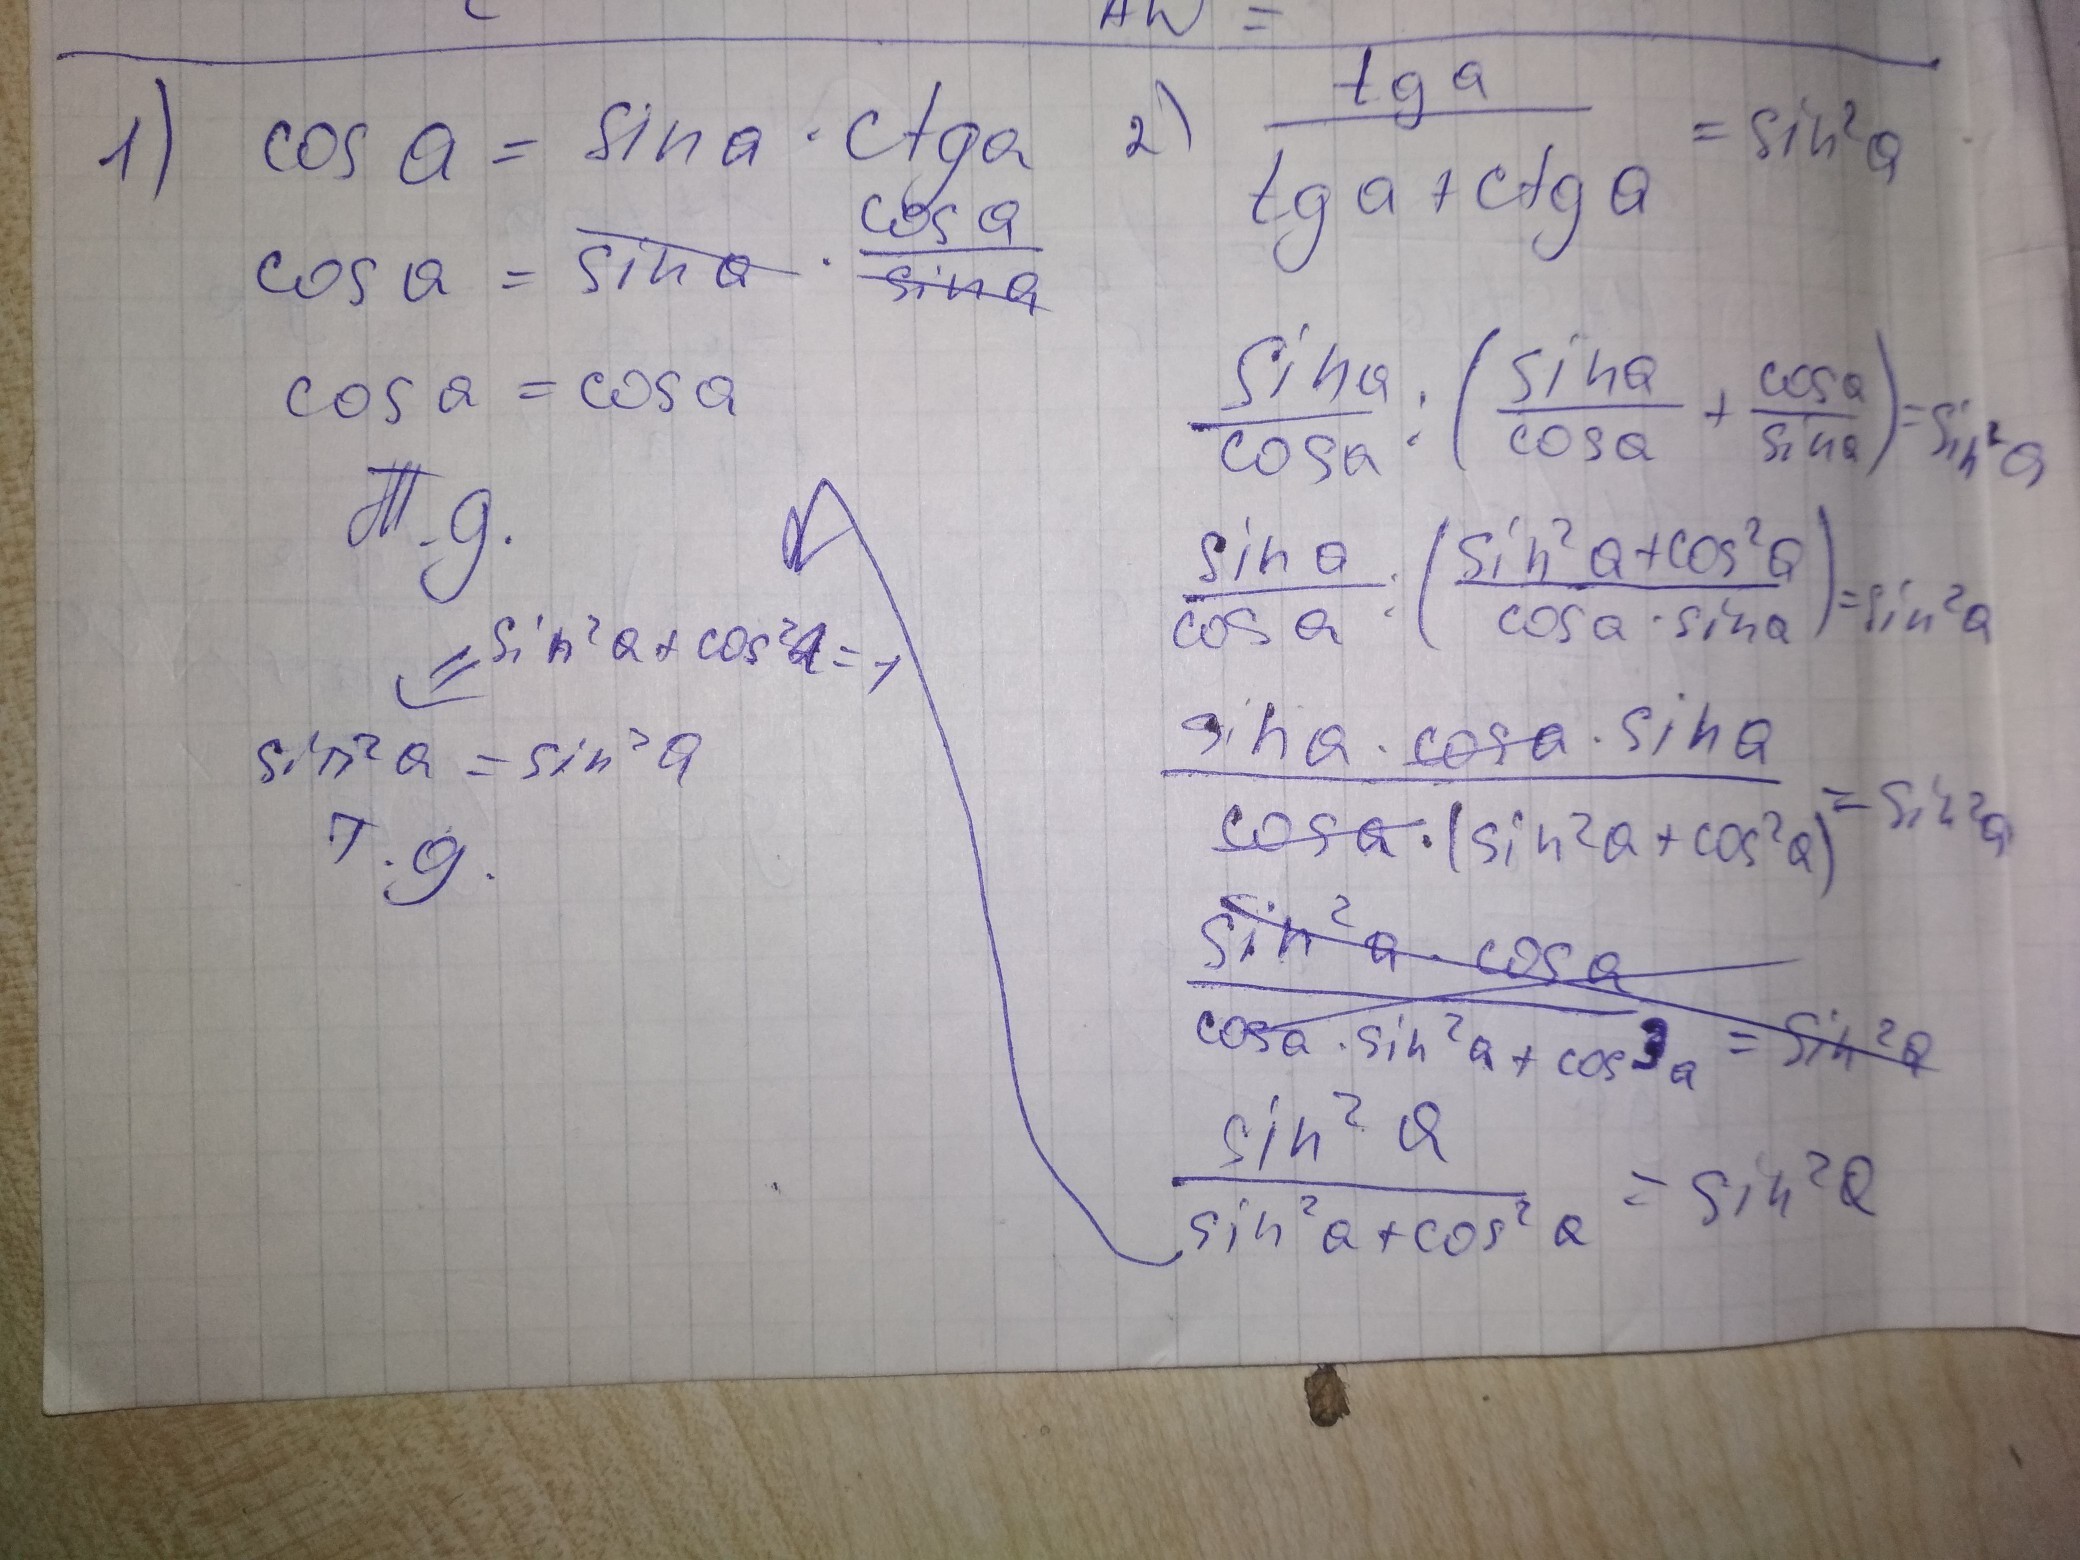 AW =
1) cos a = sin a · ctg a
cos a = sin a · cos a / sin a
cos a = cos a
Т.g.
sin²a + cos²a = 1
sin²a = sin²a
Т.g.
2) tg a / tg a + ctg a = sin²a
sin a / cos a : (sin a / cos a + cos a / sin a) = sin²a
sin a / cos a : (sin²a + cos²a / cos a · sin a) = sin²a
sin a · cos a · sin a / cos a · (sin²a + cos²a) = sin²a
sin²a · cos a / cos a · sin²a + cos³a = sin²a
sin²a / sin²a + cos²a = sin²a